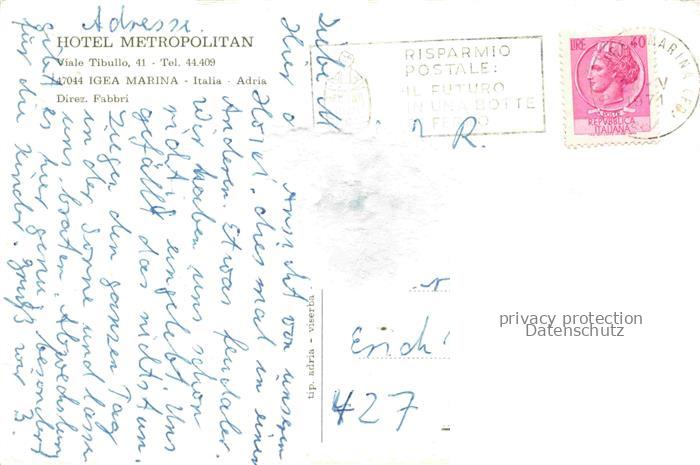 Adresse.
HOTEL METROPOLITAN
Viale Tibullo, 41 - Tel. 44.409
47044 IGEA MARINA - Italia - Adria
Direz. Fabbri
Hier
Ansicht von unseren
Hotel, diesmal in einen
Anderen. Etwas feudaler.
Wir haben uns schon
richtig eingelebt. Uns
gefällt das nichtstun.
Liegen den ganzen Tag
in der Sonne und lassen
uns braten. Abwechslung
gibt es hier genug besonders
für die Kinder. Grüße wir 3.
RISPARMIO
POSTALE:
IL FUTURO
IN UNA BOTTE
DI FERRO
LIRE 40
REPVBBLICA
ITALIANA
MARINA
R.
Erich
427
tip. adria - viserba
privacy protection
Datenschutz